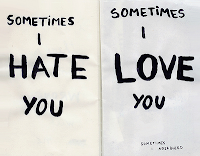 SOMETiMES
i
HATE
YOU
SOMETiMES
i
LOVE
YOU
SOMETIMES